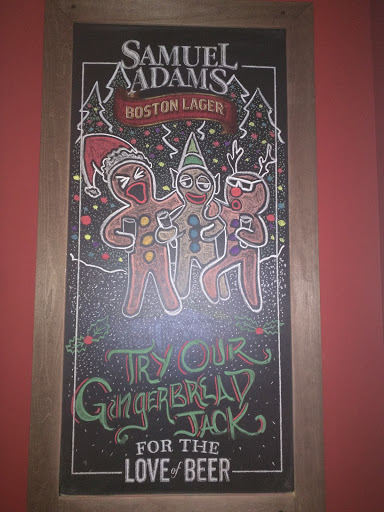 SAMUEL
ADAMS
BOSTON LAGER
TRY OUR
GINGERBREAD
JACK
FOR THE
LOVE of BEER